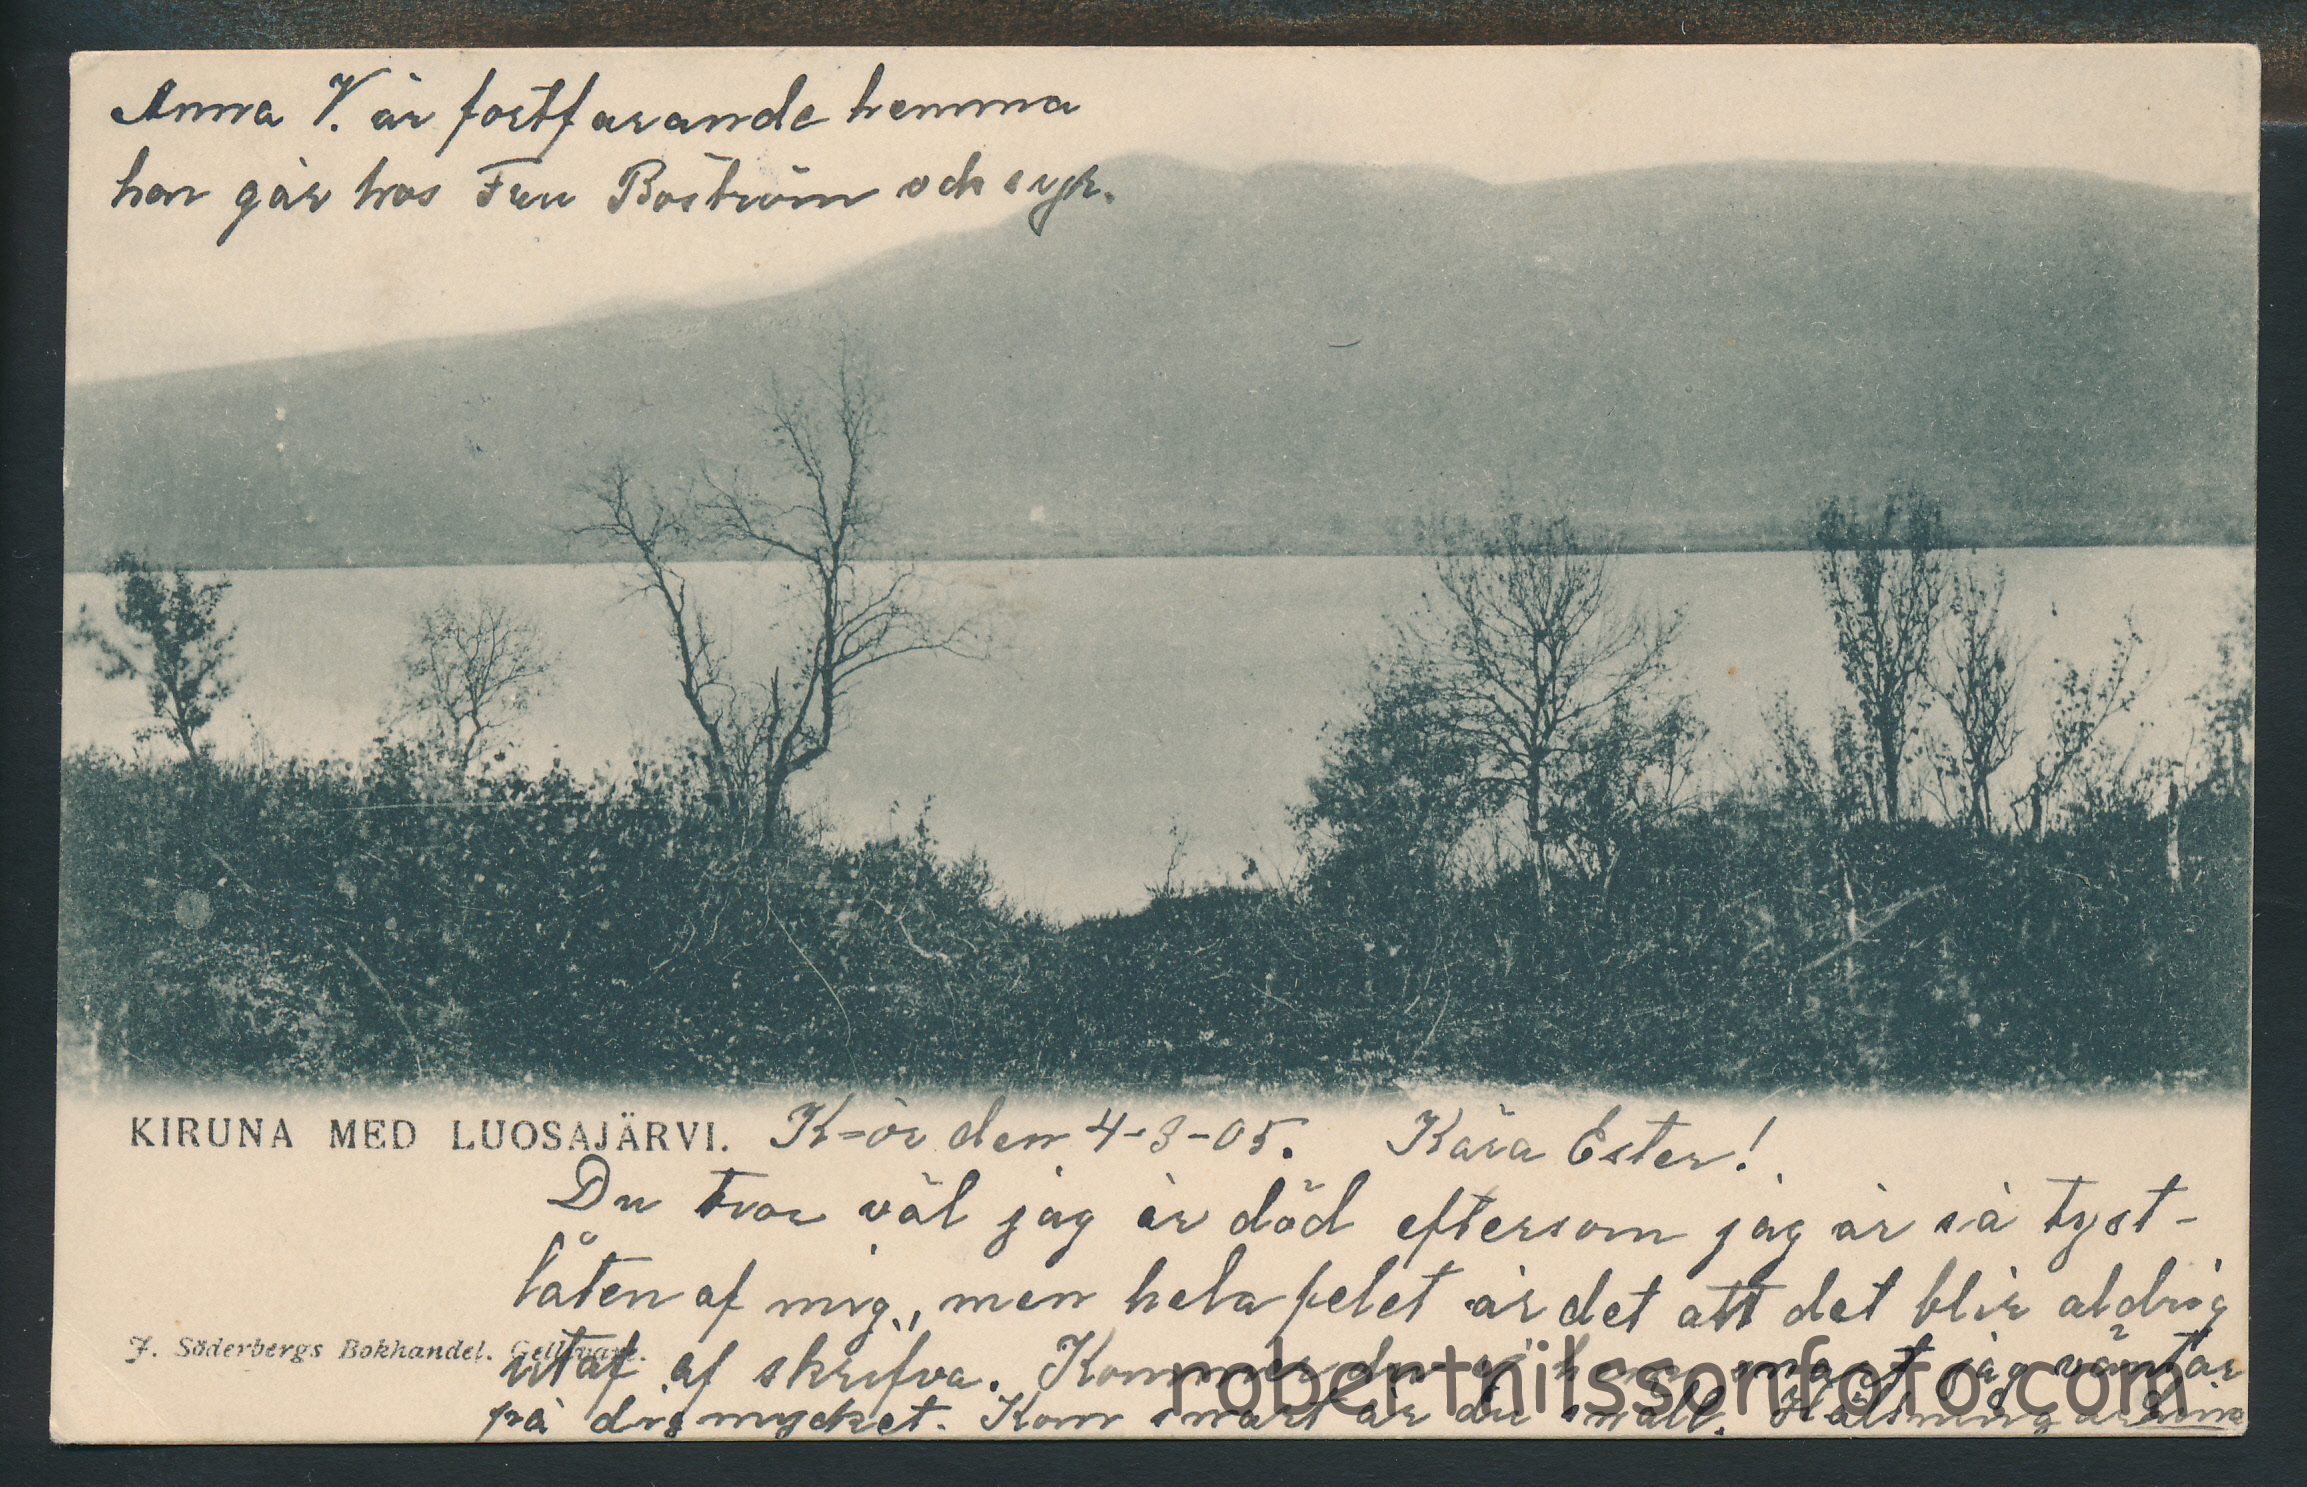 Anna V. är fortfarande hemma
hon går hos Fru Boström och syr.
KIRUNA MED LUOSAJÄRVI. K=ör den 4-3-05. Kära Ester!
Du tror väl jag är död eftersom jag är så tyst-
låten af mig, men hela felet är det att det blir aldrig
J. Söderbergs Bokhandel. Gellivare.
utaf af skrifva. Kommer du ej hem snart jag väntar
på dig mycket. Kom snart är du snäll. Hälsningar
robertnilssonfoto.com